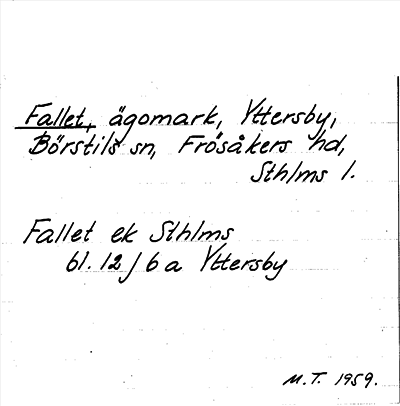 Fallet, ägomark, Yttersby,
Börstils sn, Frösåkers hd,
Sthlms l.
Fallet ek Sthlms
bl. 12 J 6 a Yttersby
M.T. 1959.